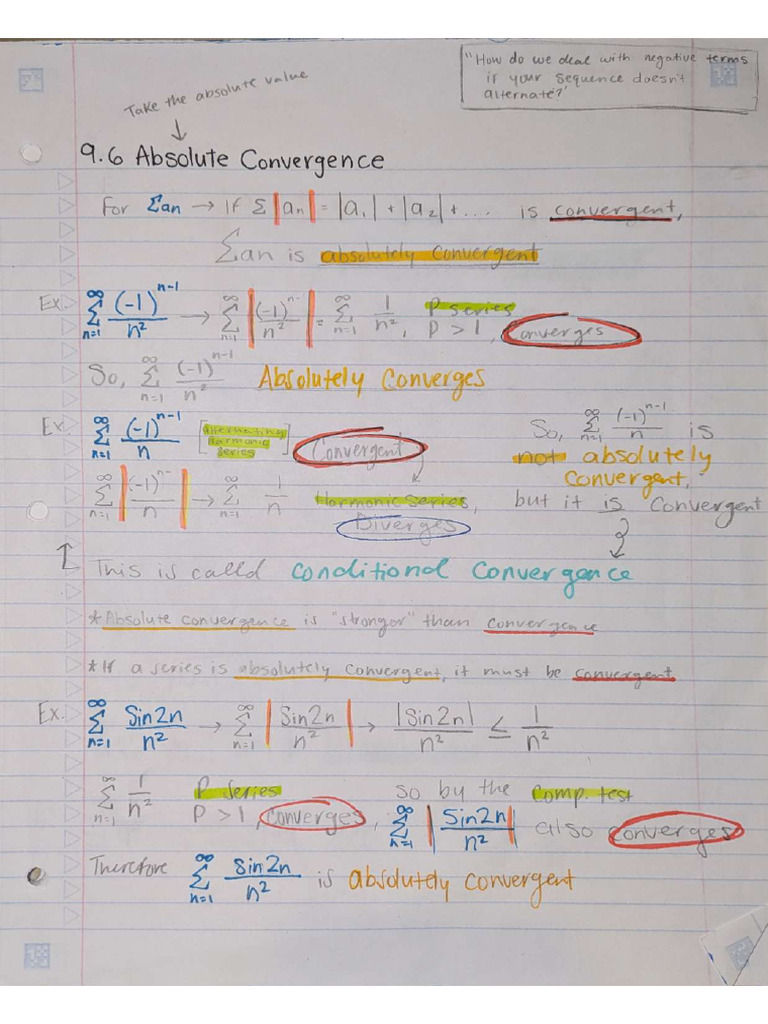 "How do we deal with negative terms
if your sequence doesn't
alternate?"
Take the absolute value
↓
9.6 Absolute Convergence
For Σan → If Σ|an| = |a₁| + |a₂| + .... is convergent,
Σan is absolutely convergent
Ex. ∞Σn=1 (-1)^n-1/n² → ∞Σn=1 |(-1)^n-/n²| = ∞Σn=1 1/n², P series P > 1, Converges
So, ∞Σn=1 (-1)^n-1/n² Absolutely Converges
Ex. ∞Σn=1 (-1)^n-1/n [Alternating Harmonic Series] Convergent
∞Σn=1 |(-1)^n-/n| → ∞Σn=1 1/n Harmonic series, Diverges
So, ∞Σn=1 (-1)^n-1/n is
not absolutely
convergent,
but it is convergent
↑ This is called Conditional Convergence
*Absolute convergence is "stronger" than convergence
*If a series is absolutely convergent, it must be convergent
Ex. ∞Σn=1 Sin2n/n² → ∞Σn=1 |Sin2n/n²| → |Sin2n|/n² ≤ 1/n²
∞Σn=1 1/n² P series P > 1, Converges, So by the Comp. test
∞Σn=1 |Sin2n/n²| also converges
Therefore ∞Σn=1 Sin2n/n² is absolutely convergent